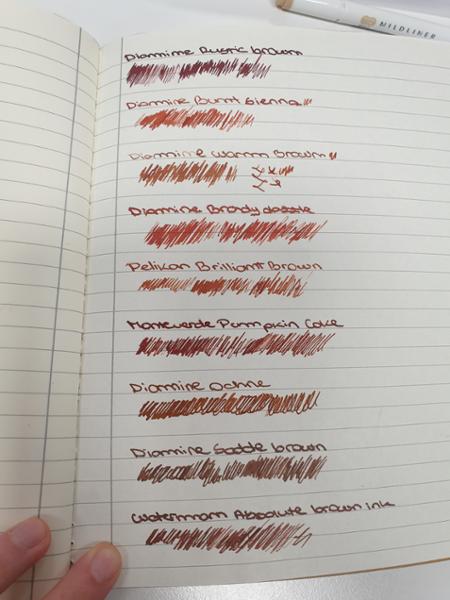 MILDLINER
Diamine Rustic brown
Diamine Burnt Sienna
Diamine Warm Brown
Diamine Brandy dazzle
Pelikan Brilliant Brown
Monteverde Pumpkin Cake
Diamine Ochre
Diamine Saddle brown
Waterman Absolute brown ink